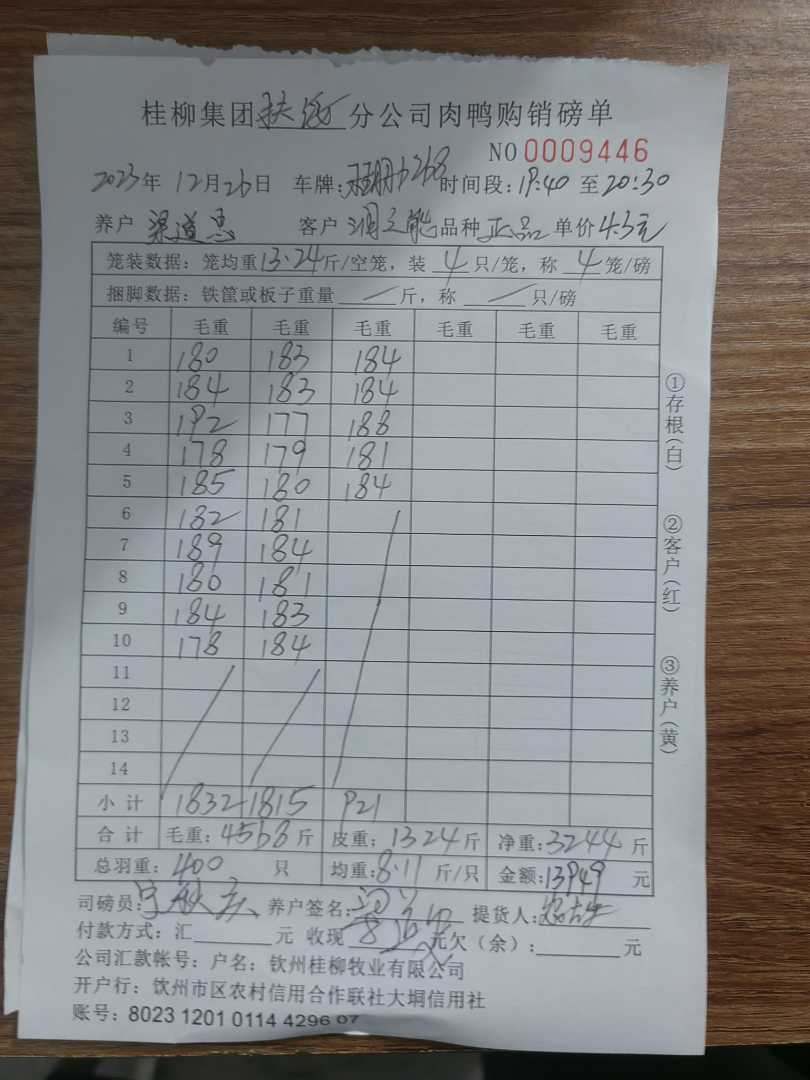 桂柳集团扶绥分公司肉鸭购销磅单
NO 0009446
2023年 12月26日 车牌: 时间段:19:40 至 20:30
养户 渠道忠 客户 润之能 品种 正品 单价 4.3元
笼装数据：笼均重13.24斤/空笼，装 4 只/笼，称 4 笼/磅
捆脚数据：铁筐或板子重量 — 斤，称 — 只/磅
编号 毛重 毛重 毛重 毛重 毛重 毛重
1 180 183 184
2 184 183 184
3 192 177 188
4 178 179 181
5 185 180 184
6 182 181
7 189 184
8 180 181
9 184 183
10 178 184
11
12
13
14
小计 1832 1815 921
合计 毛重：4568斤 皮重：1324斤 净重：3244斤
总羽重：400 只 均重：8.11 斤/只 金额：13949 元
司磅员： 养户签名： 提货人：
付款方式：汇 元 收现 元欠（余）： 元
公司汇款帐号：户名：钦州桂柳牧业有限公司
开户行：钦州市区农村信用合作联社大垌信用社
账号：8023 1201 0114 4296 07
①存根(白)
②客户(红)
③养户(黄)